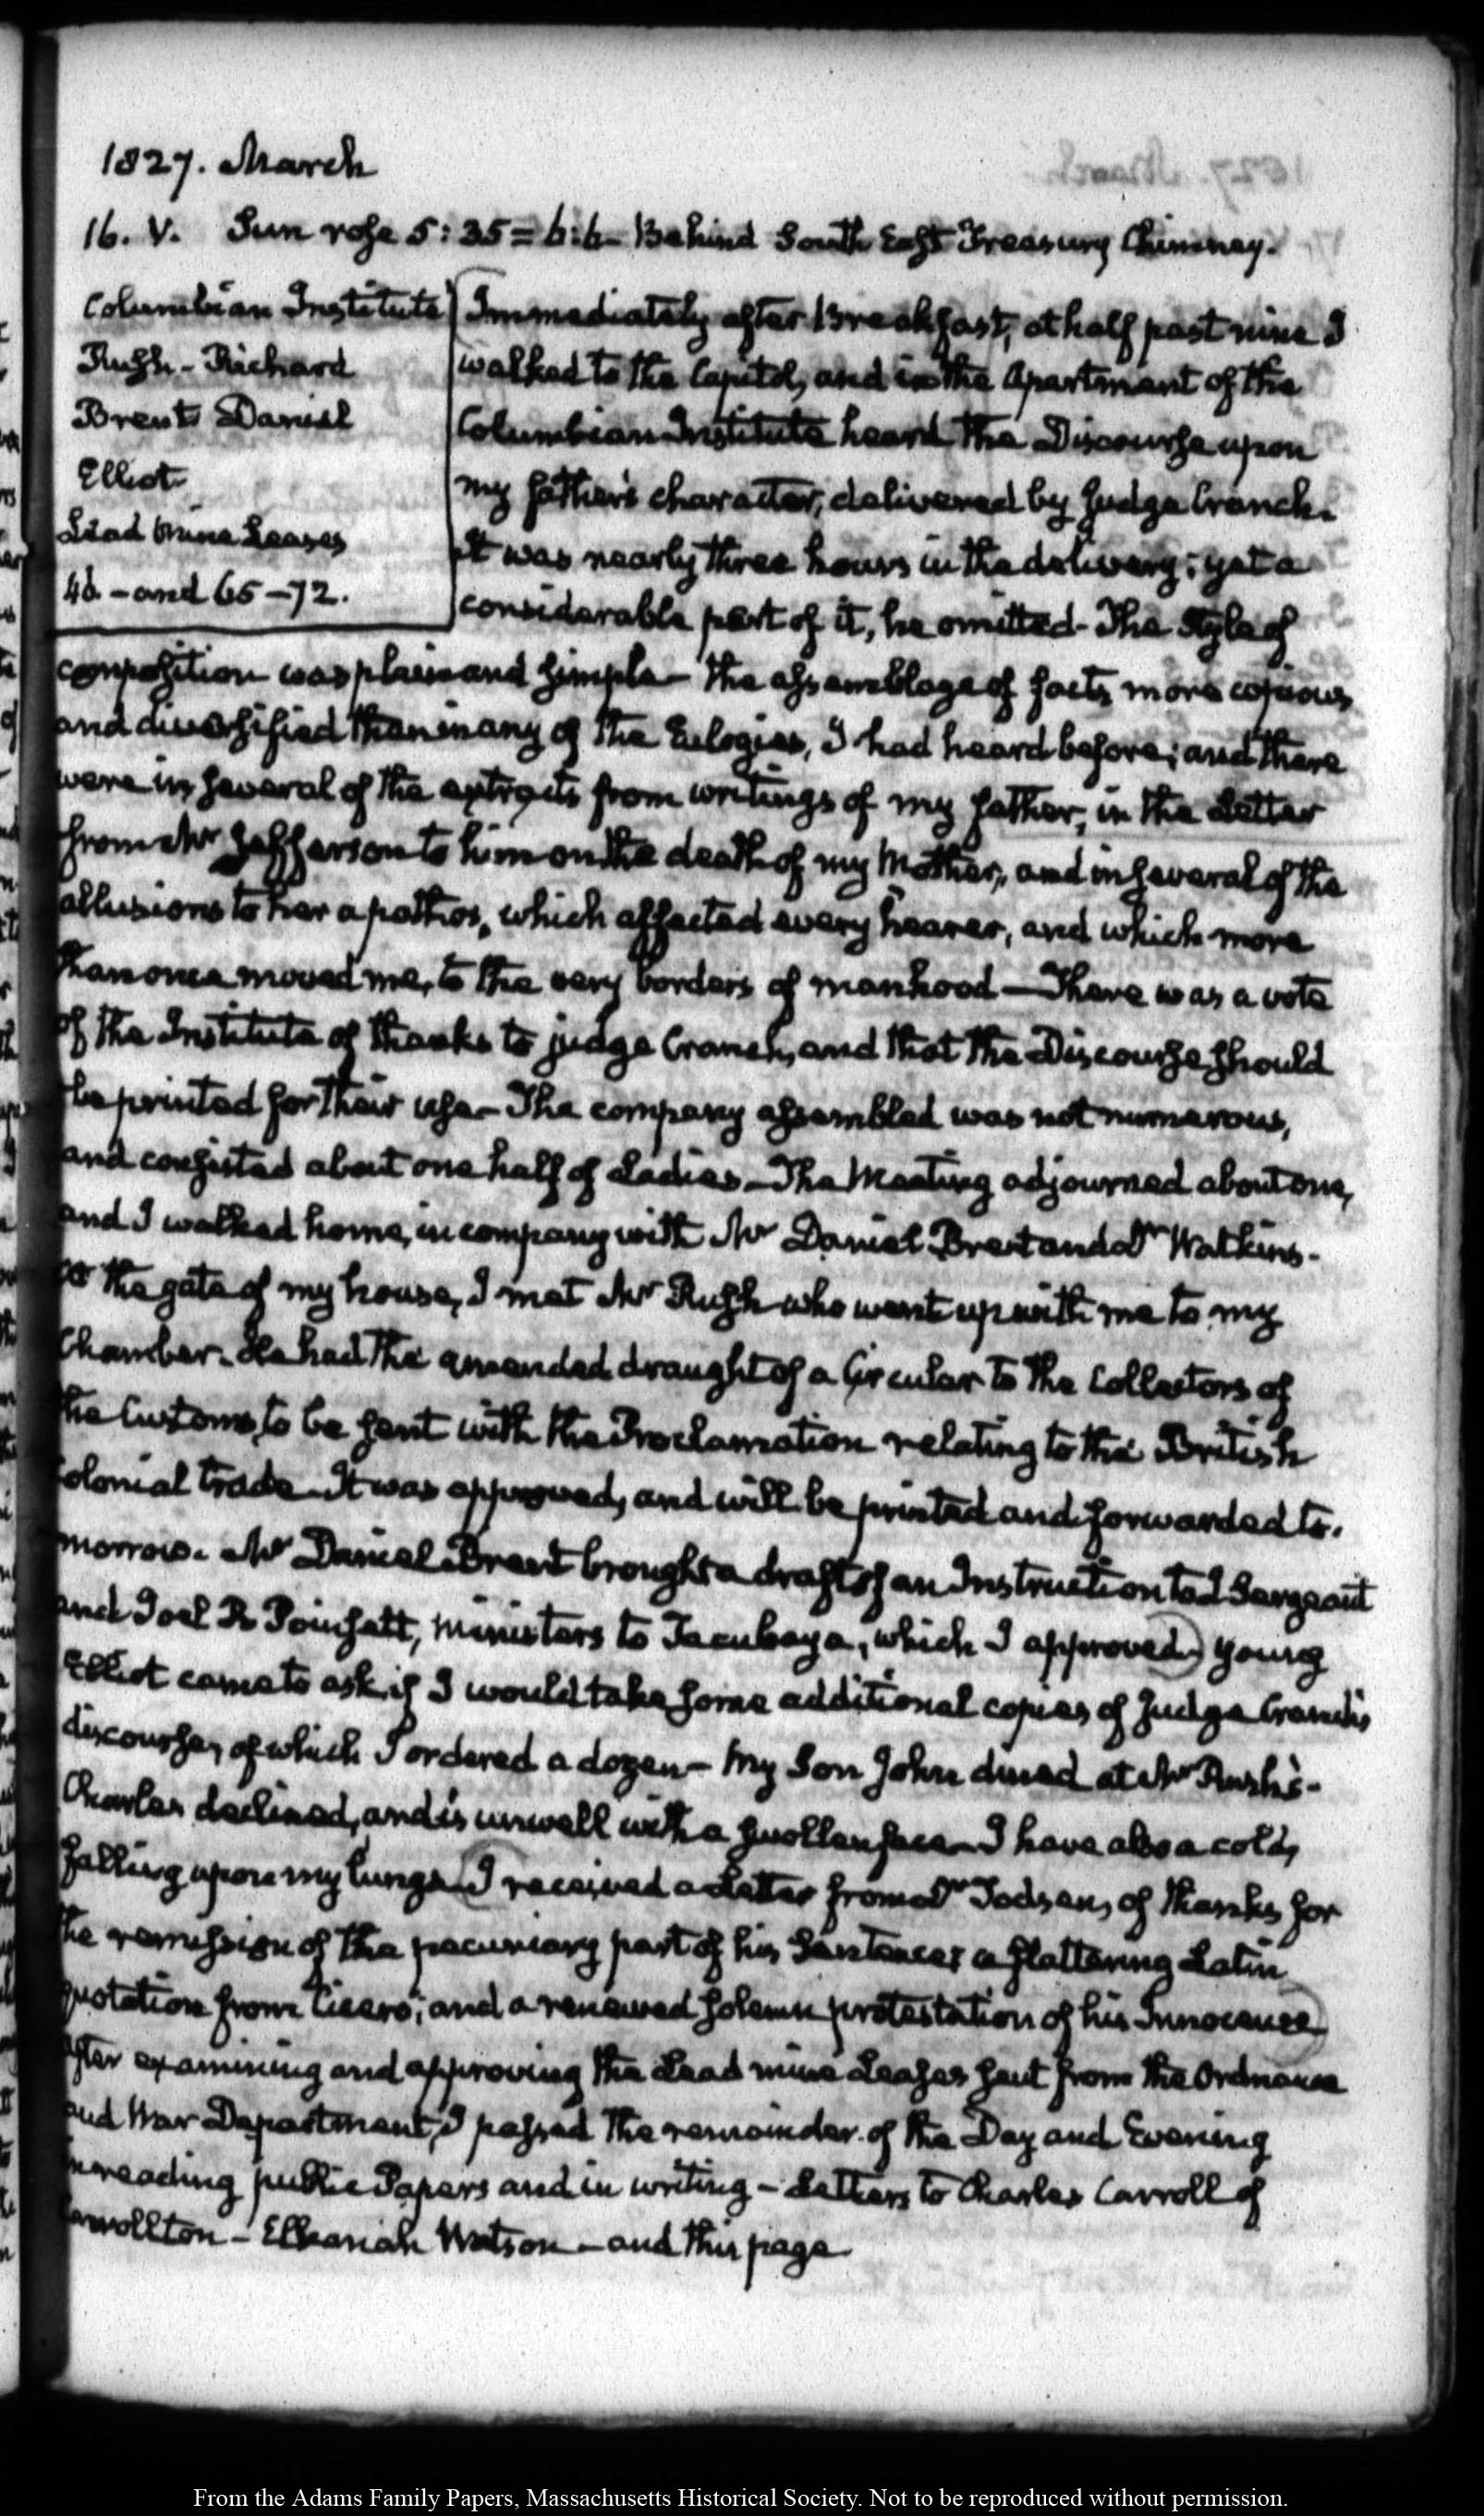 1827. March
16. V. Sun rose 5:35=6:6- Behind South East Treasury Chimney.
Columbian Institute
Rush - Richard
Brent Daniel
Elliot
Lead Mine Leases
46 - and 65-72.
Immediately after Breakfast, at half past nine I
walked to the Capitol, and in the Apartment of the
Columbian Institute heard the Discourse upon
my father's character, delivered by Judge Cranch.
It was nearly three hours in the delivery; yet a
considerable part of it, he omitted- The style of
composition was plain and simple- the assemblage of facts more copious
and diversified than in any of the Eulogies, I had heard before; and there
were in several of the extracts from writings of my father, in the Letter
from Mr Jefferson to him on the death of my Mother, and in several of the
allusions to her a pathos, which affected every hearer, and which more
than once moved me, to the very borders of manhood- There was a vote
of the Institute of thanks to judge Cranch, and that the Discourse should
be printed for their use- The company assembled was not numerous,
and consisted about one half of Ladies- The Meeting adjourned about one,
and I walked home, in company with Mr Daniel Brent and Dr Watkins-
At the gate of my house, I met Mr Rush who went up with me to my
Chamber. He had the amended draught of a Circular to the Collectors of
the Customs, to be sent with the Proclamation relating to the British
Colonial trade- It was approved, and will be printed and forwarded to-
morrow. Mr Daniel Brent brought a draft of an Instruction to J Sergeant
and Joel R Poinsett, Ministers to Tacubaya, which I approved) young
Elliot came to ask if I would take some additional copies of Judge Cranch's
discourse, of which I ordered a dozen- My Son John dined at Mr Rush's-
Charles declined, and is unwell with a swollen face- I have also a cold,
falling upon my lungs- (I received a Letter from Dr Todsen, of thanks for
the remission of the pecuniary part of his Sentence; a flattering Latin
quotation from Cicero; and a renewed solemn protestation of his Innocence)
After examining and approving the Lead mine Leases sent from the Ordnance
and War Department, I passed the remainder of the Day and Evening
in reading public Papers and in writing- Letters to Charles Carroll of
Carrollton- Elkanah Watson- and this page
From the Adams Family Papers, Massachusetts Historical Society. Not to be reproduced without permission.